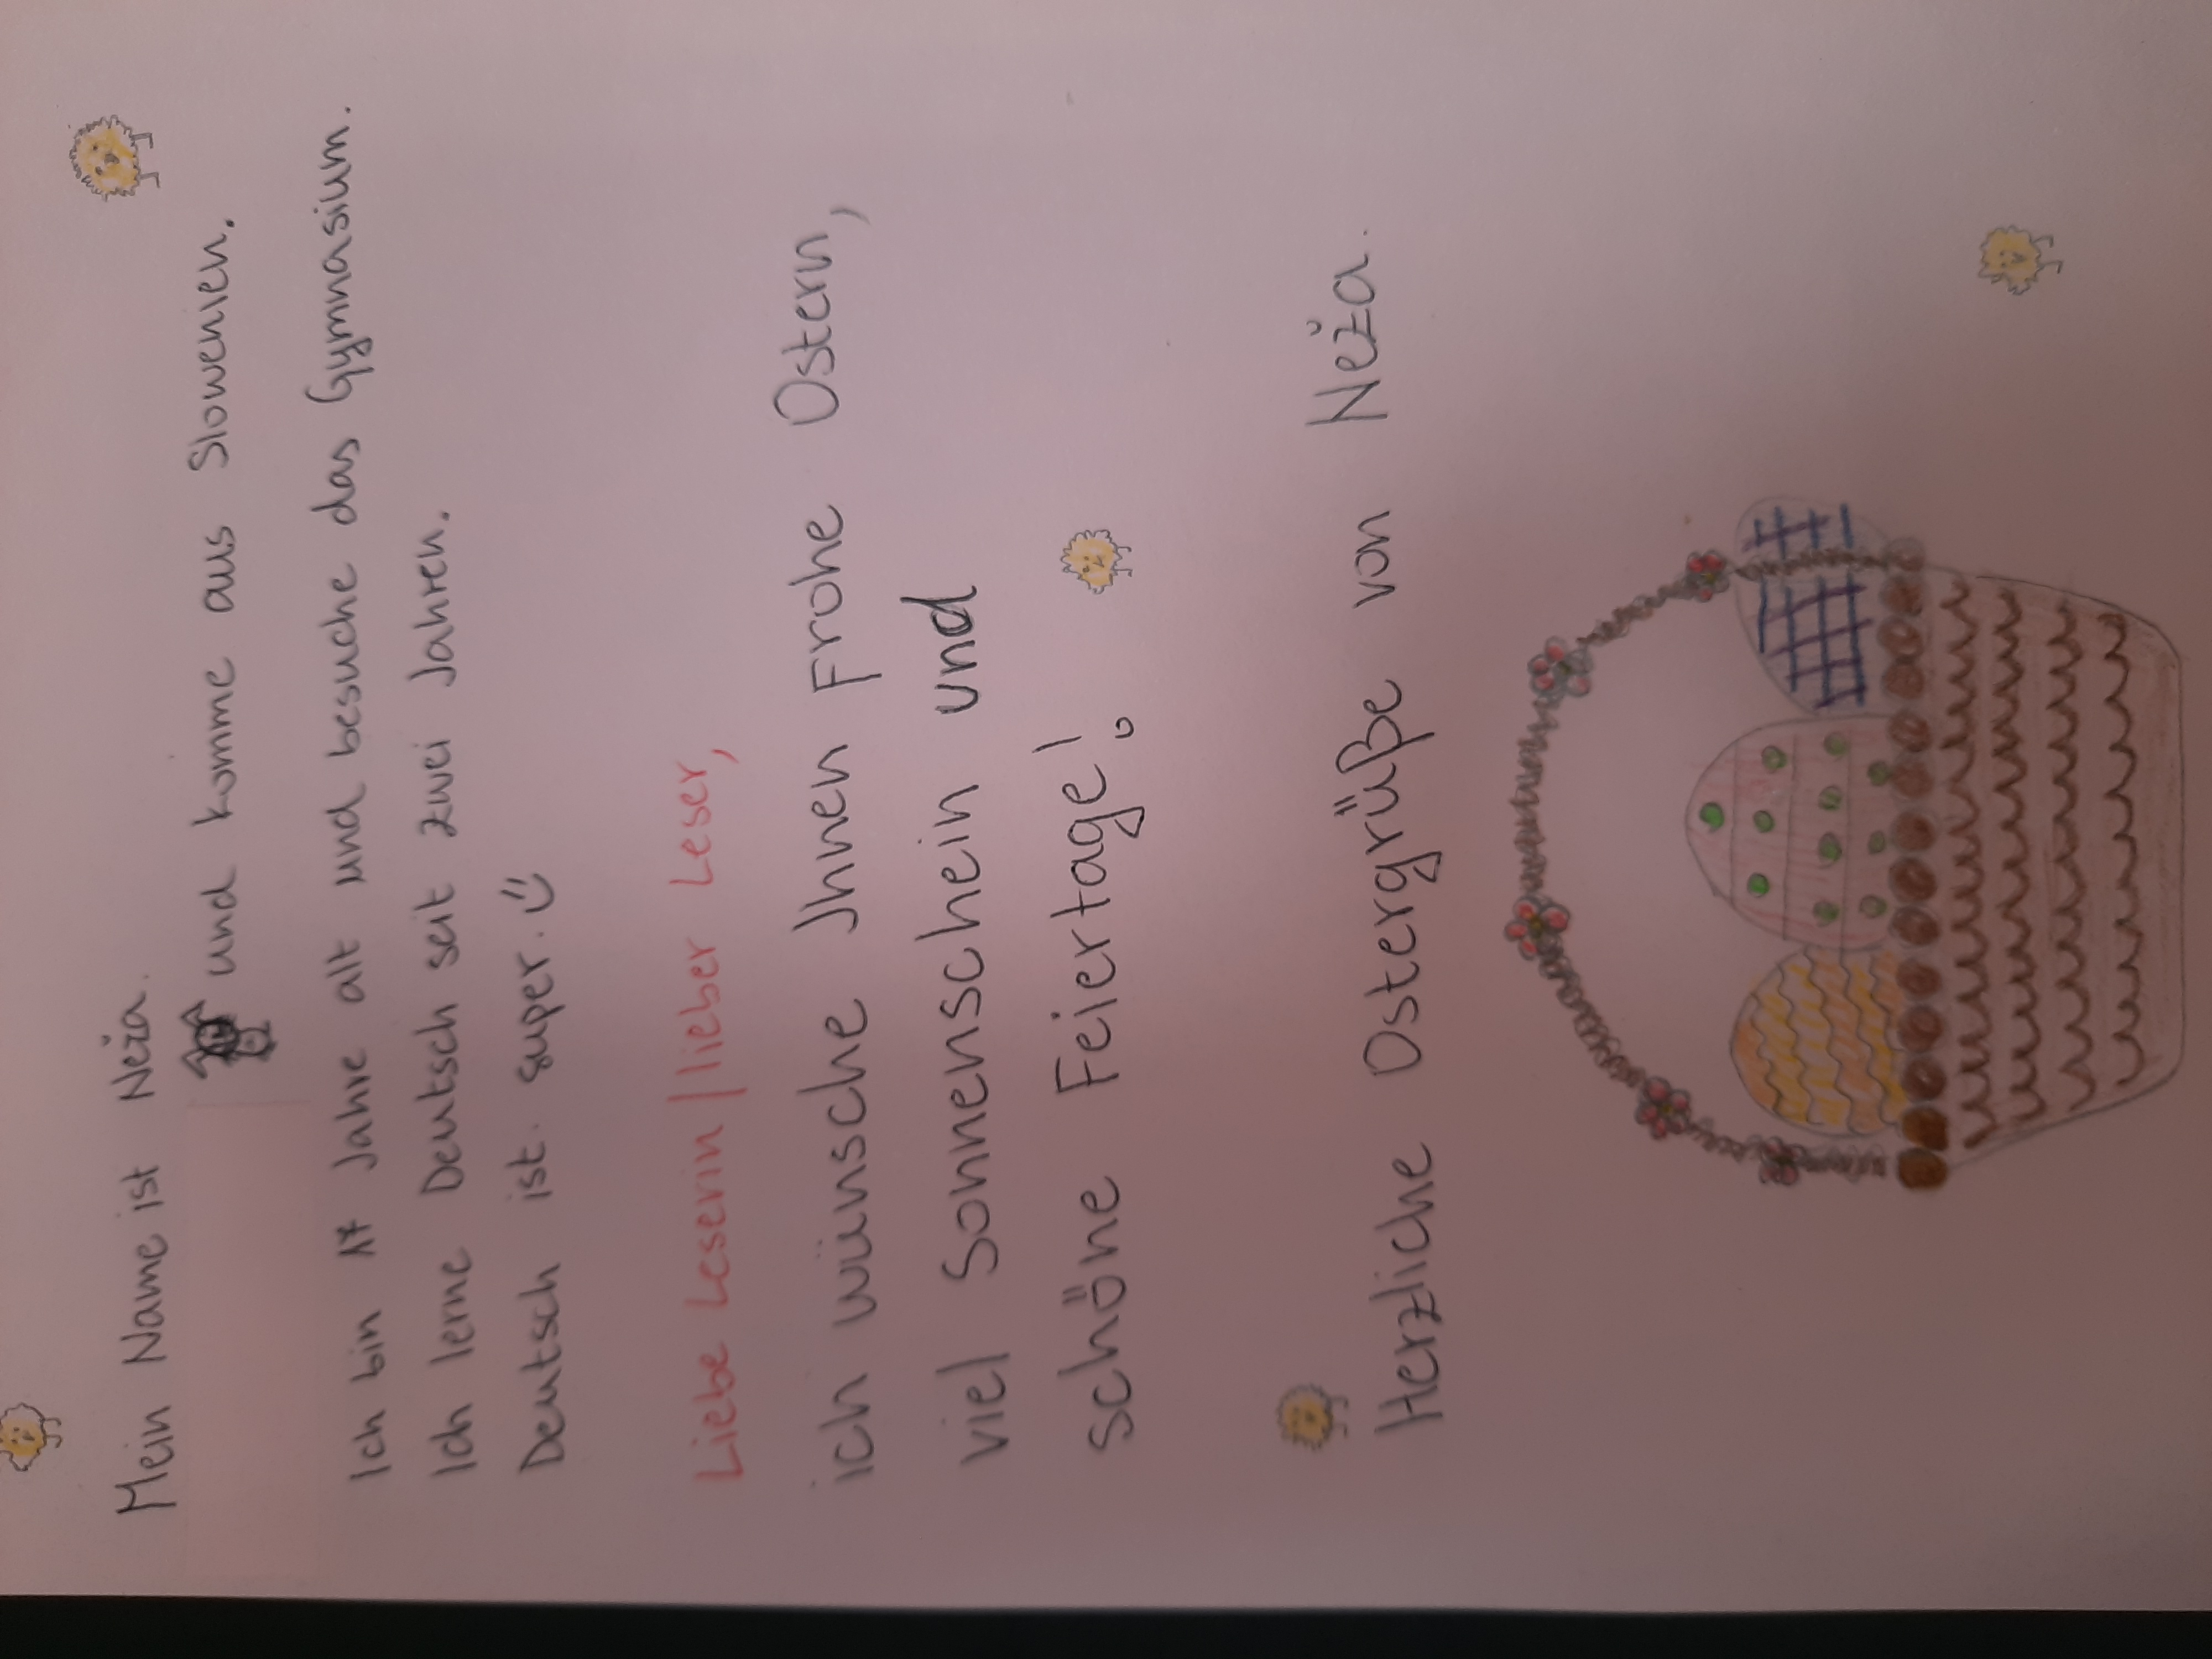 Mein Name ist Neža.
und komme aus Slowenien.
Ich bin 17 Jahre alt und besuche das Gymnasium.
Ich lerne Deutsch seit zwei Jahren.
Deutsch ist super. ☺
Liebe Leserin | lieber Leser,
ich wünsche Ihnen Frohe Ostern,
viel Sonnenschein und
schöne Feiertage!
Herzliche Ostergrüße von Neža.